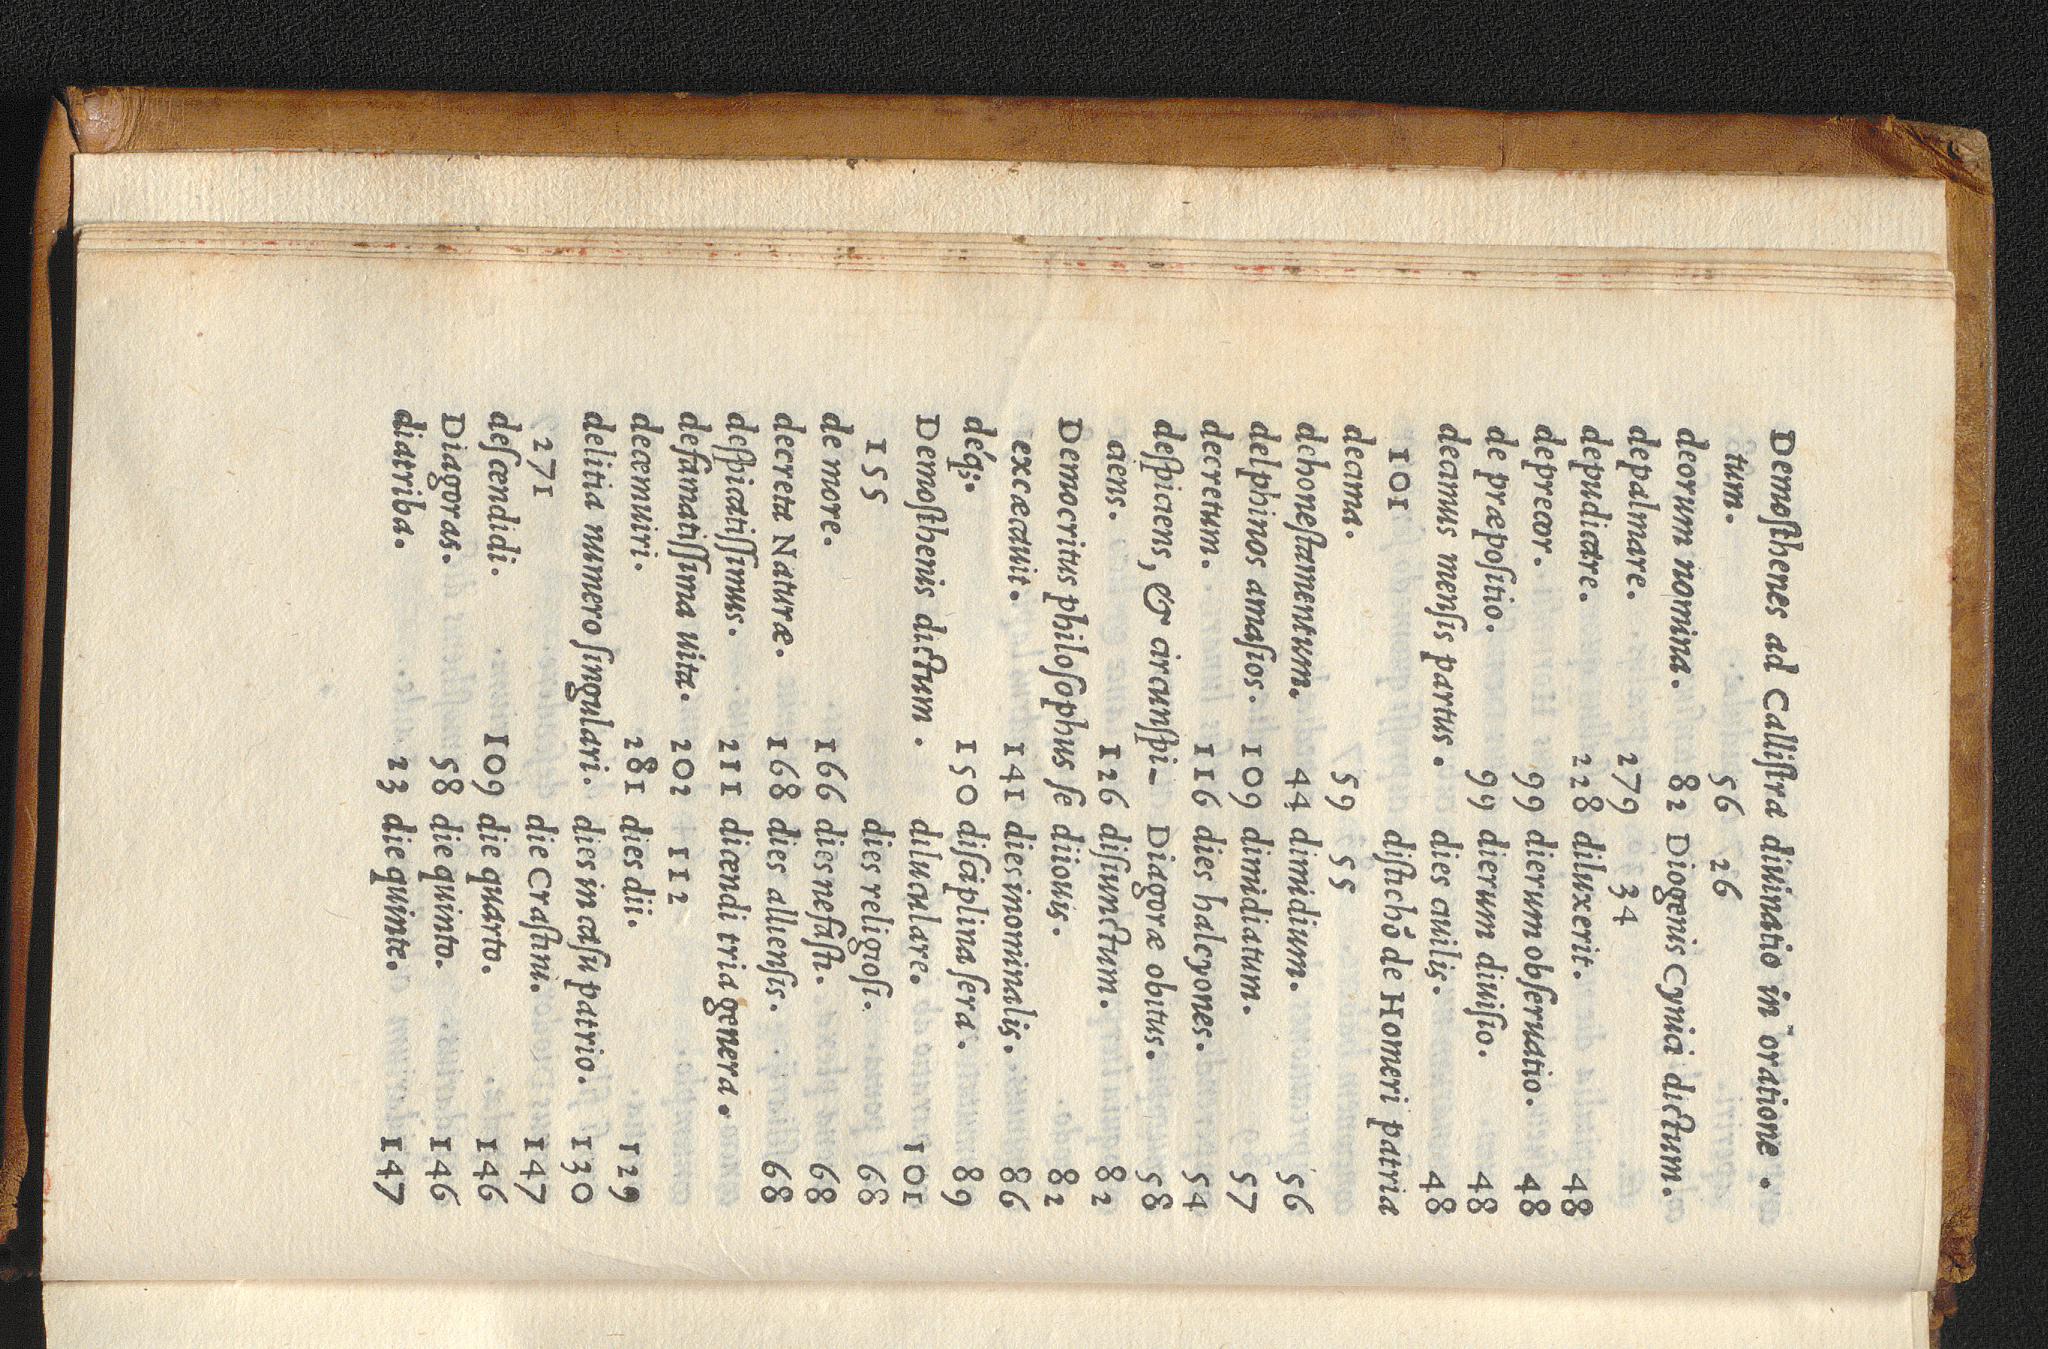 Demoſthenes ad Calliſtra
tum. 56
deorum nomina. 82
depalmare. 279
depudicare. 228
deprecor. 99
de præpoſitio. 99
decimus menſis partus.
101
decima. 59
dehoneſtamentum. 44
delphinos amaſios. 109
decretum. 116
deſpiciens, & circunſpi-
ciens. 126
Democritus philoſophus ſe
excæcauit. 141
déq;. 150
Demoſthenis dictum.
155
de more. 166
decreta Naturæ. 168
deſpicatiſſimus. 211
defamatiſſima uita. 202
decemuiri. 281
delitia numero ſingulari.
271
deſcendidi. 109
Diagoras. 58
diatriba. 23
diuinatio in oratione.
26
Diogenis Cynici dictum.
34
diluxerit. 48
dierum obſeruatio. 48
dierum diuiſio. 48
dies ciuilis. 48
diſtichõ de Homeri patria
55
dimidium. 56
dimidiatum. 57
dies halcyones. 54
Diagoræ obitus. 58
diſiunctum. 82
diiouis. 82
dies inominalis. 86
diſciplina ſera. 89
diluculare. 101
dies religioſi. 68
dies nefaſti. 68
dies allienſis. 68
dicendi tria genera.
112
dies dii. 129
dies in caſu patrio. 130
die Craſtini. 147
die quarto. 146
die quinto. 146
die quinte. 147